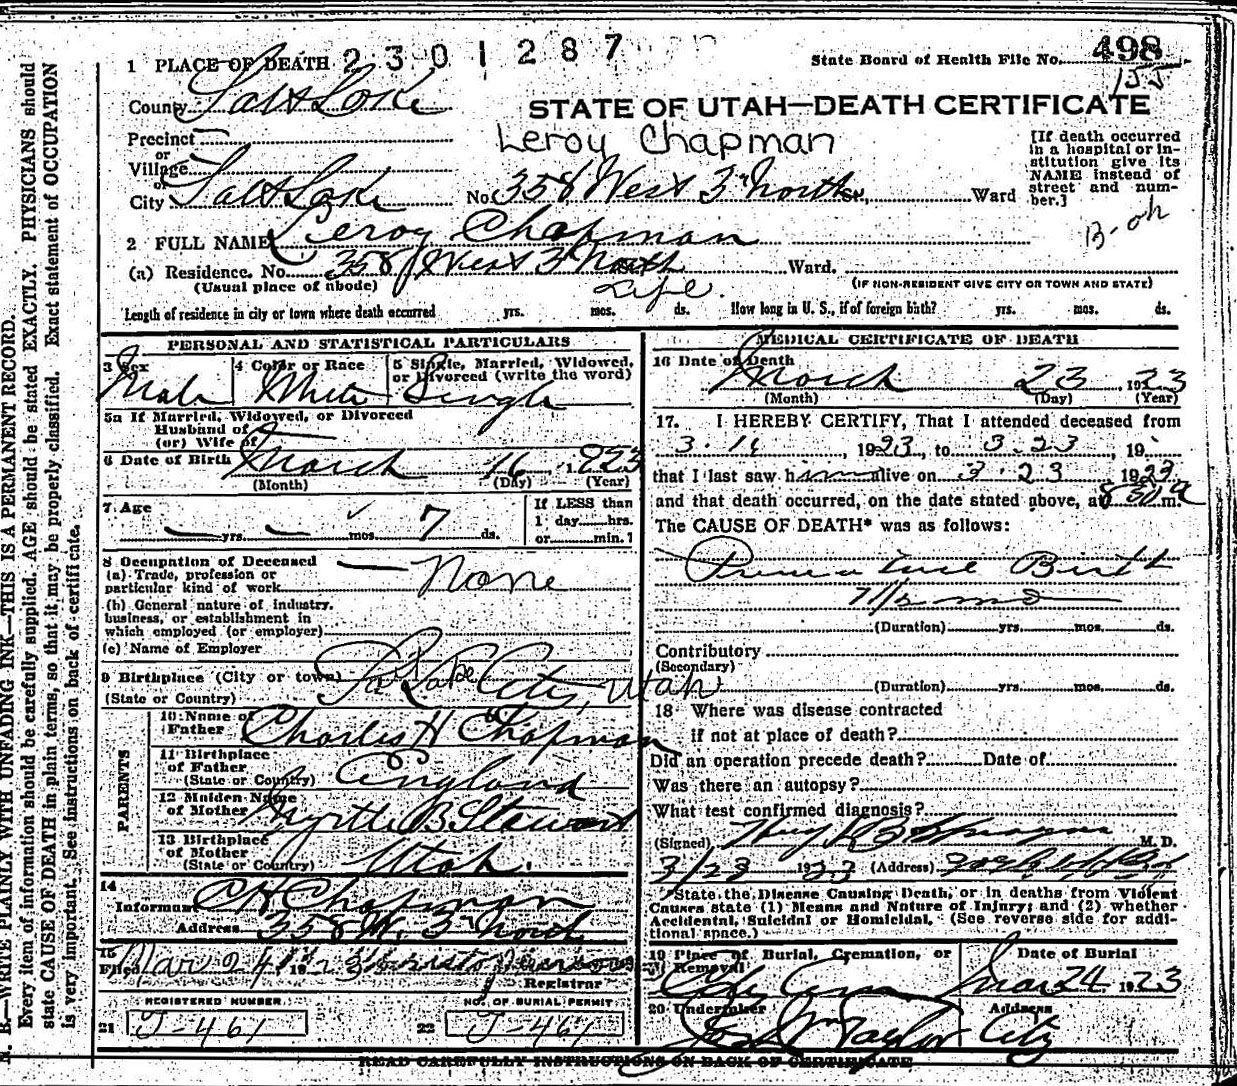 N. B.—WRITE PLAINLY WITH UNFADING INK—THIS IS A PERMANENT RECORD.
Every item of information should be carefully supplied. AGE should be stated EXACTLY. PHYSICIANS should
state CAUSE OF DEATH in plain terms, so that it may be properly classified. Exact statement of OCCUPATION
is very important. See instructions on back of certificate.
1 PLACE OF DEATH 2301287
State Board of Health File No. 498
155
County Salt Lake
STATE OF UTAH—DEATH CERTIFICATE
Precinct
or
Village
or
City Salt Lake
Leroy Chapman
No. 358 West 3rd North St., Ward
[If death occurred
in a hospital or in-
stitution give its
NAME instead of
street and num-
ber.]
B-oh
2 FULL NAME Leroy Chapman
(a) Residence. No. 358 West 3 North Ward.
(Usual place of abode)
(IF NON-RESIDENT GIVE CITY OR TOWN AND STATE)
Life
Length of residence in city or town where death occurred yrs. mos. ds. How long in U. S., if of foreign birth? yrs. mos. ds.
PERSONAL AND STATISTICAL PARTICULARS
3 Sex
Male
4 Color or Race
White
5 Single, Married, Widowed,
or Divorced (write the word)
Single
5a If Married, Widowed, or Divorced
Husband of
(or) Wife of
6 Date of Birth March 16, 1923
(Month) (Day) (Year)
7 Age
— yrs. — mos. 7 ds.
If LESS than
1 day hrs.
or min.?
8 Occupation of Deceased
(a) Trade, profession or
particular kind of work None
(b) General nature of industry,
business, or establishment in
which employed (or employer)
(c) Name of Employer
9 Birthplace (City or town) Salt Lake City, Utah
(State or Country)
PARENTS
10 Name of
Father Charles H Chapman
11 Birthplace
of Father
(State or Country) England
12 Maiden Name
of Mother Myrtle B Stewart
13 Birthplace
of Mother
(State or Country) Utah.
14
Informant C H Chapman
Address 358 W. 3rd North
15
Filed Mar 24 1923
Registrar
REGISTERED NUMBER
21 J-461
NO. OF BURIAL PERMIT
22 J-461
MEDICAL CERTIFICATE OF DEATH
16 Date of Death
March 23, 1923
(Month) (Day) (Year)
17. I HEREBY CERTIFY, That I attended deceased from
3.16 1923, to 3.23, 19
that I last saw him alive on 3.23 1923
and that death occurred, on the date stated above, at 8 30 a m.
The CAUSE OF DEATH* was as follows:
Premature Birth
7 1/2 mo
(Duration) yrs. mos. ds.
Contributory
(Secondary)
(Duration) yrs. mos. ds.
18 Where was disease contracted
if not at place of death?
Did an operation precede death? Date of
Was there an autopsy?
What test confirmed diagnosis?
(Signed) M. D.
3/23 1923 (Address)
*State the Disease Causing Death, or in deaths from Violent
Causes state (1) Means and Nature of Injury; and (2) whether
Accidental, Suicidal or Homicidal. (See reverse side for addi-
tional space.)
19 Place of Burial, Cremation, or
Removal
Date of Burial
Mar 24 1923
20 Undertaker
Taylor
Address
City
READ CAREFULLY INSTRUCTIONS ON BACK OF CERTIFICATE